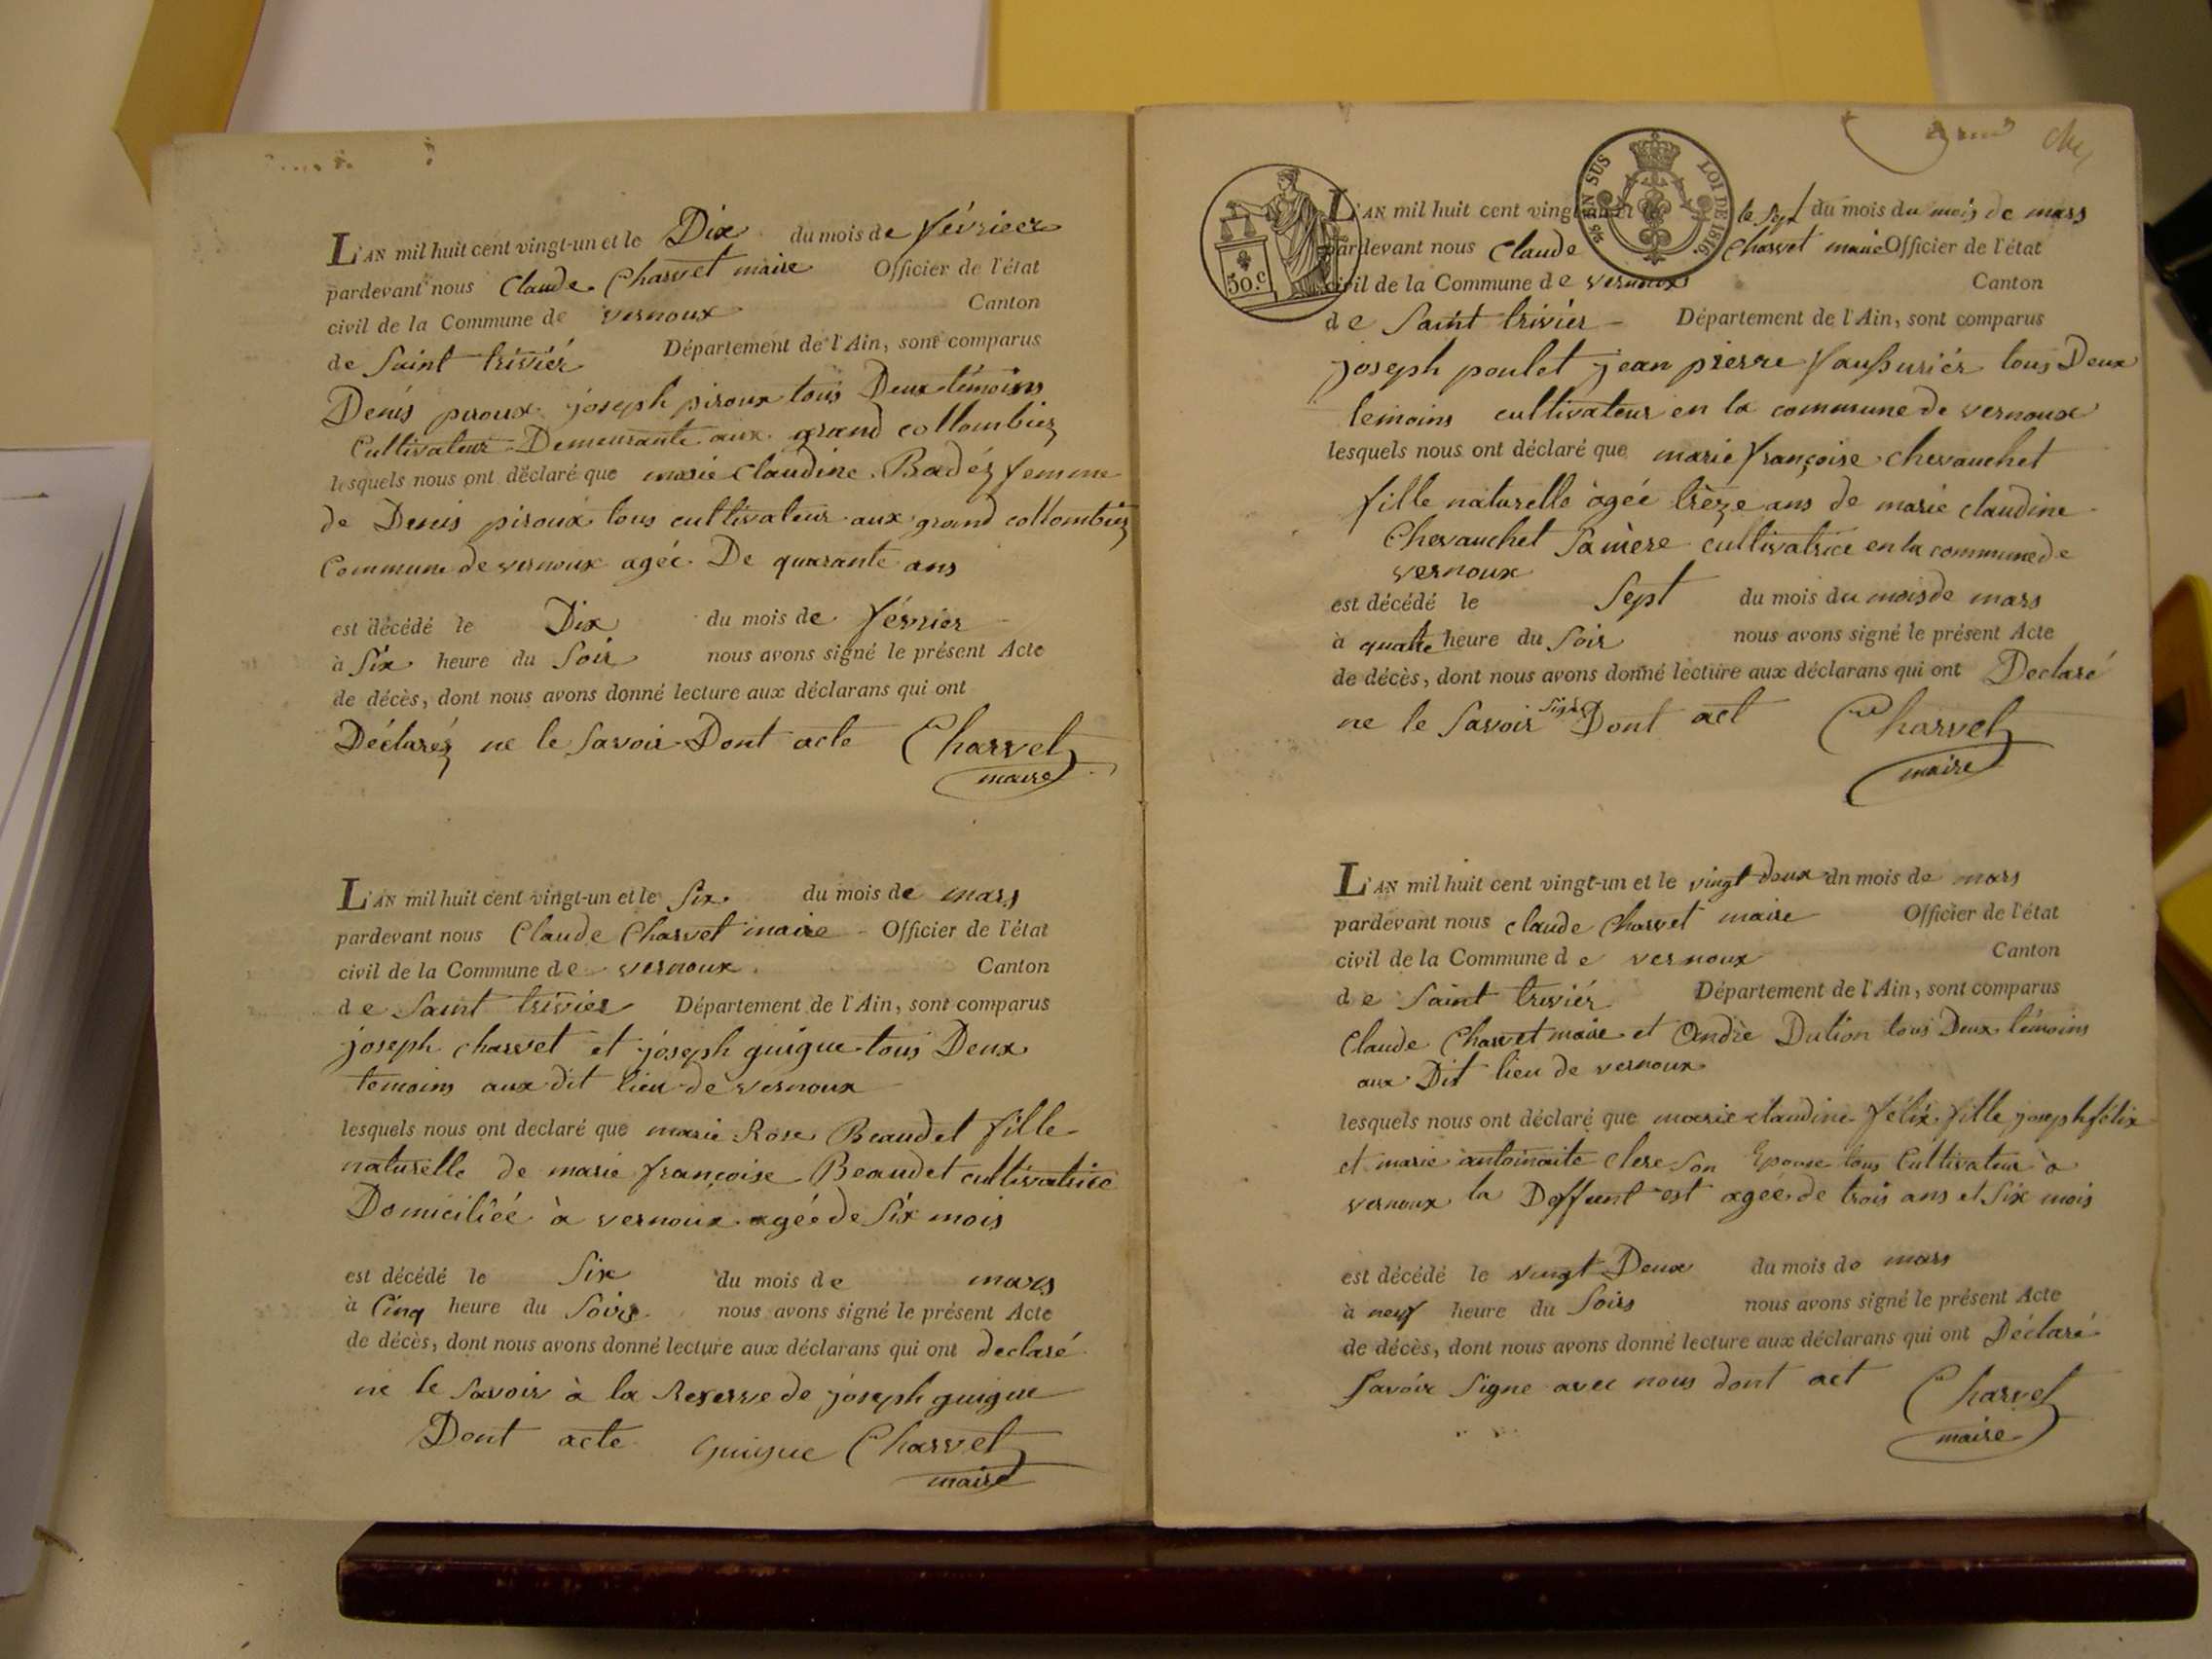 L'AN mil huit cent vingt-un et le Dix du mois de février
pardevant nous Claude Charvet maire Officier de l'état
civil de la Commune de vernoux Canton
de Saint trivier Département de l'Ain, sont comparus
Denis piroux joseph piroux tous Deux témoins
Cultivateur Demeurante aux grand collombiez
lesquels nous ont déclaré que marie Claudine Badéz femme
de Denis piroux tous cultivateur aux grand collombiez
Commune de vernoux agée De quarante ans
est décédé le Dix du mois de février
à Six heure du Soir nous avons signé le présent Acte
de décès, dont nous avons donné lecture aux déclarans qui ont
Déclaréz ne le Savoir Dont acte Charvet
maire
L'AN mil huit cent vingt-un et le Six du mois de mars
pardevant nous Claude Charvet maire Officier de l'état
civil de la Commune de vernoux Canton
de Saint trivier Département de l'Ain, sont comparus
joseph charvet et joseph guigue tous Deux
temoins aux dit lieu de vernoux
lesquels nous ont declaré que marie Rose Beaudet fille
naturelle de marie françoise Beaudet cultivatrice
Domiciliéé à vernoux agéé de Six mois
est décédé le Six du mois de mars
à Cinq heure du Soirs nous avons signé le présent Acte
de décès, dont nous avons donné lecture aux déclarans qui ont declaré
ne le Savoir à la Reserve de joseph guigue
Dont acte guigue Charvet
maire
EN SUS LOI DE 1816
50.c
L'AN mil huit cent vingt le Sept du mois du mois de mars
pardevant nous Claude Charvet maire Officier de l'état
civil de la Commune de vernoux Canton
de Saint trivier Département de l'Ain, sont comparus
joseph poulet jean pierre tous Deux
temoins cultivateur en la commune de vernoux
lesquels nous ont déclaré que marie françoise chevauchet
fille naturelle àgéé trèze ans de marie claudine
Chevauchet Sa mère cultivatrice en la commune de
vernoux
est décédé le Sept du mois du mois de mars
à quatre heure du Soir nous avons signé le présent Acte
de décès, dont nous avons donné lecture aux déclarans qui ont Declaré
ne le Savoir signé Dont act Charvet
maire
L'AN mil huit cent vingt-un et le vingt deux dn mois de mars
pardevant nous claude Charvet maire Officier de l'état
civil de la Commune de vernoux Canton
de Saint trivièr Département de l'Ain, sont comparus
Claude Charvet maire et Andrè Dution tous Deux témoins
aux Dit lieu de vernoux
lesquels nous ont déclaré que marie claudine félix fille joseph félix
et marie antoinaite clere Son Epouse tous Cultivateur à
vernoux la Deffunt est agéé de trois ans et Six mois
est décédé le vingt Deux du mois de mars
à neuf heure du Soirs nous avons signé le présent Acte
de décès, dont nous avons donné lecture aux déclarans qui ont Déclaré
Savoir Signe avec nous dont act Charvet
maire